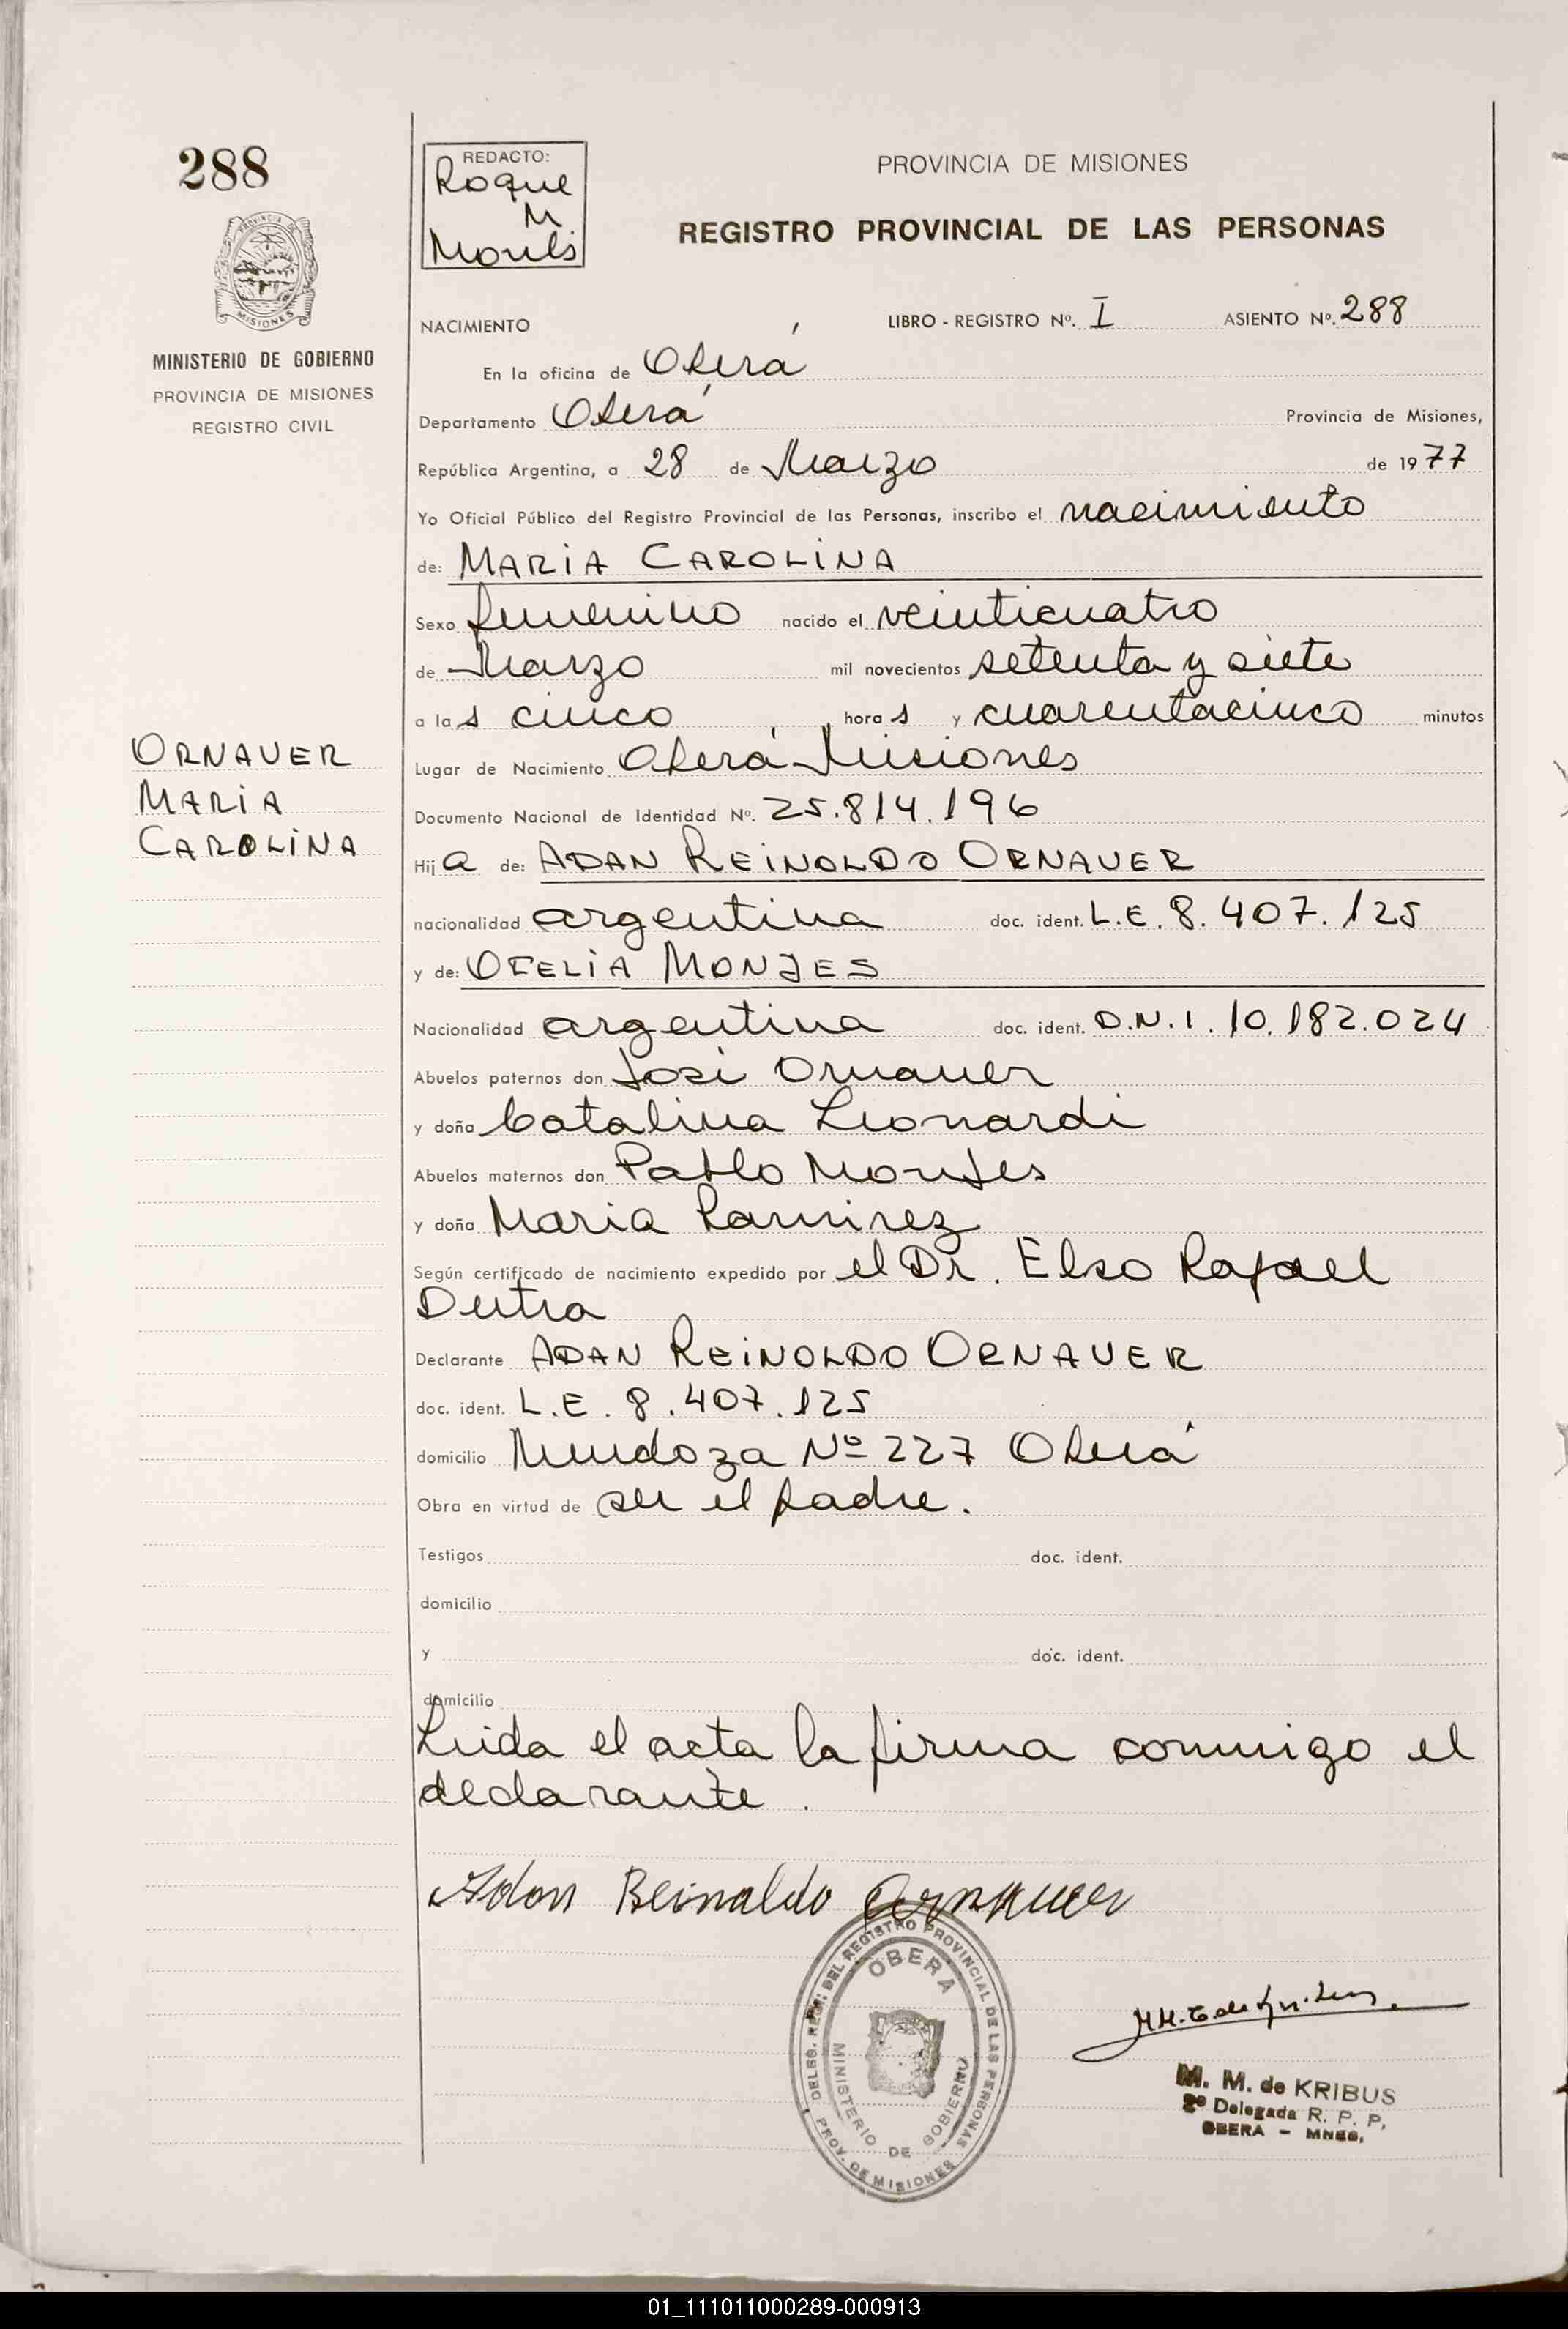 288
PROVINCIA DE
MISIONES
MINISTERIO DE GOBIERNO
PROVINCIA DE MISIONES
REGISTRO CIVIL
ORNAUER
MARIA
CAROLINA
REDACTO:
Roque
M
PROVINCIA DE MISIONES
REGISTRO PROVINCIAL DE LAS PERSONAS
NACIMIENTO LIBRO - REGISTRO Nº. I ASIENTO Nº. 288
En la oficina de Oberá
Departamento Oberá Provincia de Misiones,
República Argentina, a 28 de Marzo de 1977
Yo Oficial Público del Registro Provincial de las Personas, inscribo el nacimiento
de: MARIA CAROLINA
Sexo femenino nacido el veinticuatro
de Marzo mil novecientos setenta y siete
a las cinco horas y cuarentacinco minutos
Lugar de Nacimiento Oberá Misiones
Documento Nacional de Identidad Nº. 25.814.196
Hija de: ADAN REINOLDO ORNAUER
nacionalidad argentina doc. ident. L.E. 8.407.125
y de: OFELIA MONJES
Nacionalidad argentina doc. ident. D.N.I. 10.182.024
Abuelos paternos don José Ornauer
y doña Catalina Leonardi
Abuelos maternos don Pablo Monjes
y doña Maria Ramirez
Según certificado de nacimiento expedido por el Dr. Elso Rafael
Dutra
Declarante ADAN REINOLDO ORNAUER
doc. ident. L.E. 8.407.125
domicilio Mendoza Nº 227 Oberá
Obra en virtud de ser el padre.
Testigos doc. ident.
domicilio
y doc. ident.
domicilio
Leida el acta la firma conmigo el
declarante.
Adan Reinaldo Ornauer
DELEG. REG. DEL REGISTRO PROVINCIAL DE LAS PERSONAS
OBERA
MINISTERIO DE GOBIERNO
PROV. DE MISIONES
M. M. de KRIBUS
2º Delegada R. P. P.
OBERA - MNES.
01_111011000289-000913